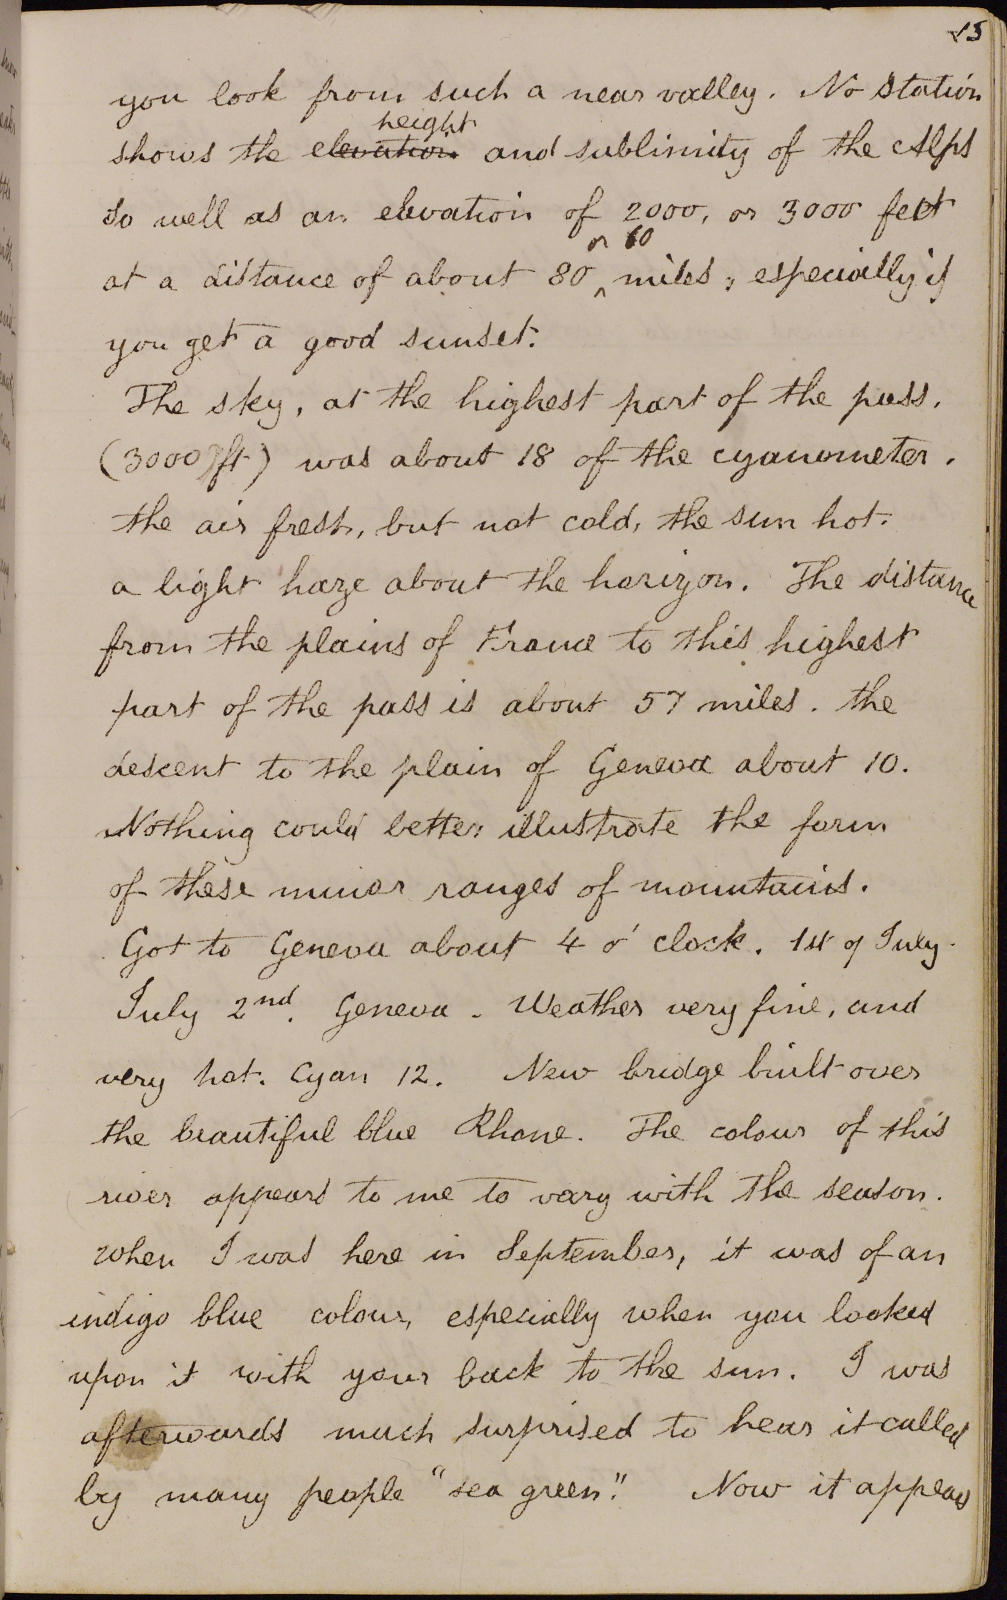 15
you look from such a near valley. No station
height
shows the elevation and sublimity of the Alps
so well as an elevation of 2000, or 3000 feet
or 60
at a distance of about 80 ^ miles; especially if
you get a good sunset.
The sky, at the highest part of the pass.
(3000 ft) was about 18 of the cyanometer.
the air fresh, but not cold, the sun hot.
a light haze about the horizon. The distance
from the plains of France to this highest
part of the pass is about 57 miles. the
descent to the plain of Geneva about 10.
Nothing could better illustrate the form
of these minor ranges of mountains.
Got to Geneva about 4 o'clock. 1st of July.
July 2nd. Geneva. Weather very fine, and
very hot. Cyan 12. New bridge built over
the beautiful blue Rhone. The colour of this
river appears to me to vary with the season.
When I was here in September, it was of an
indigo blue colour, especially when you looked
upon it with your back to the sun. I was
afterwards much surprised to hear it called
by many people "sea green." Now it appears